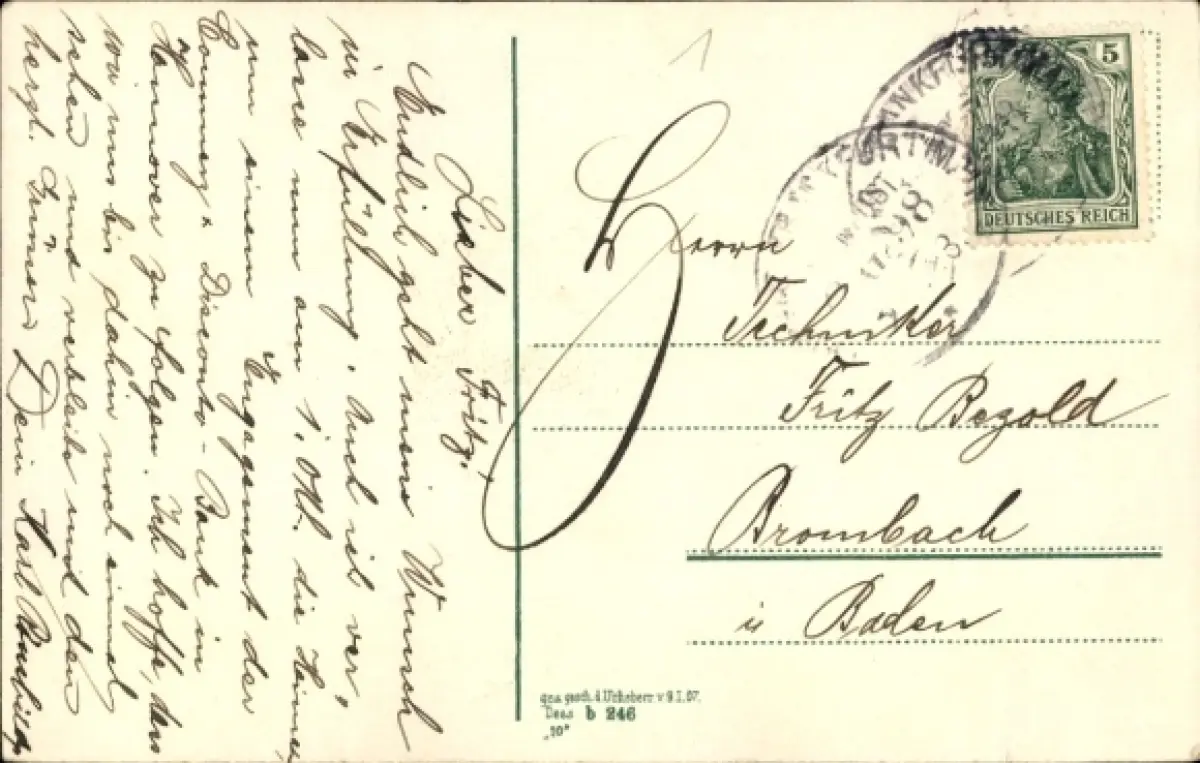 Lieber Fritz!
Endlich geht mein Wunsch
in Erfüllung. Auch ich ver-
lasse nun am 1. Okt. die Heimat,
um einem Engagement der
Commerz & Disconto-Bank in
Hannover zu folgen. Ich hoffe, dass
wir uns bis dahin noch einmal
sehen und verbleibe mit den
herzl. Grüssen Dein Karl
1
5
DEUTSCHES REICH
FRANKFURT
Herrn
Techniker
Fritz Bezold
Brombach
i/ Baden
ges. gesch. d. Urheberr. v. 9. I. 07.
Dess b 246
"10"